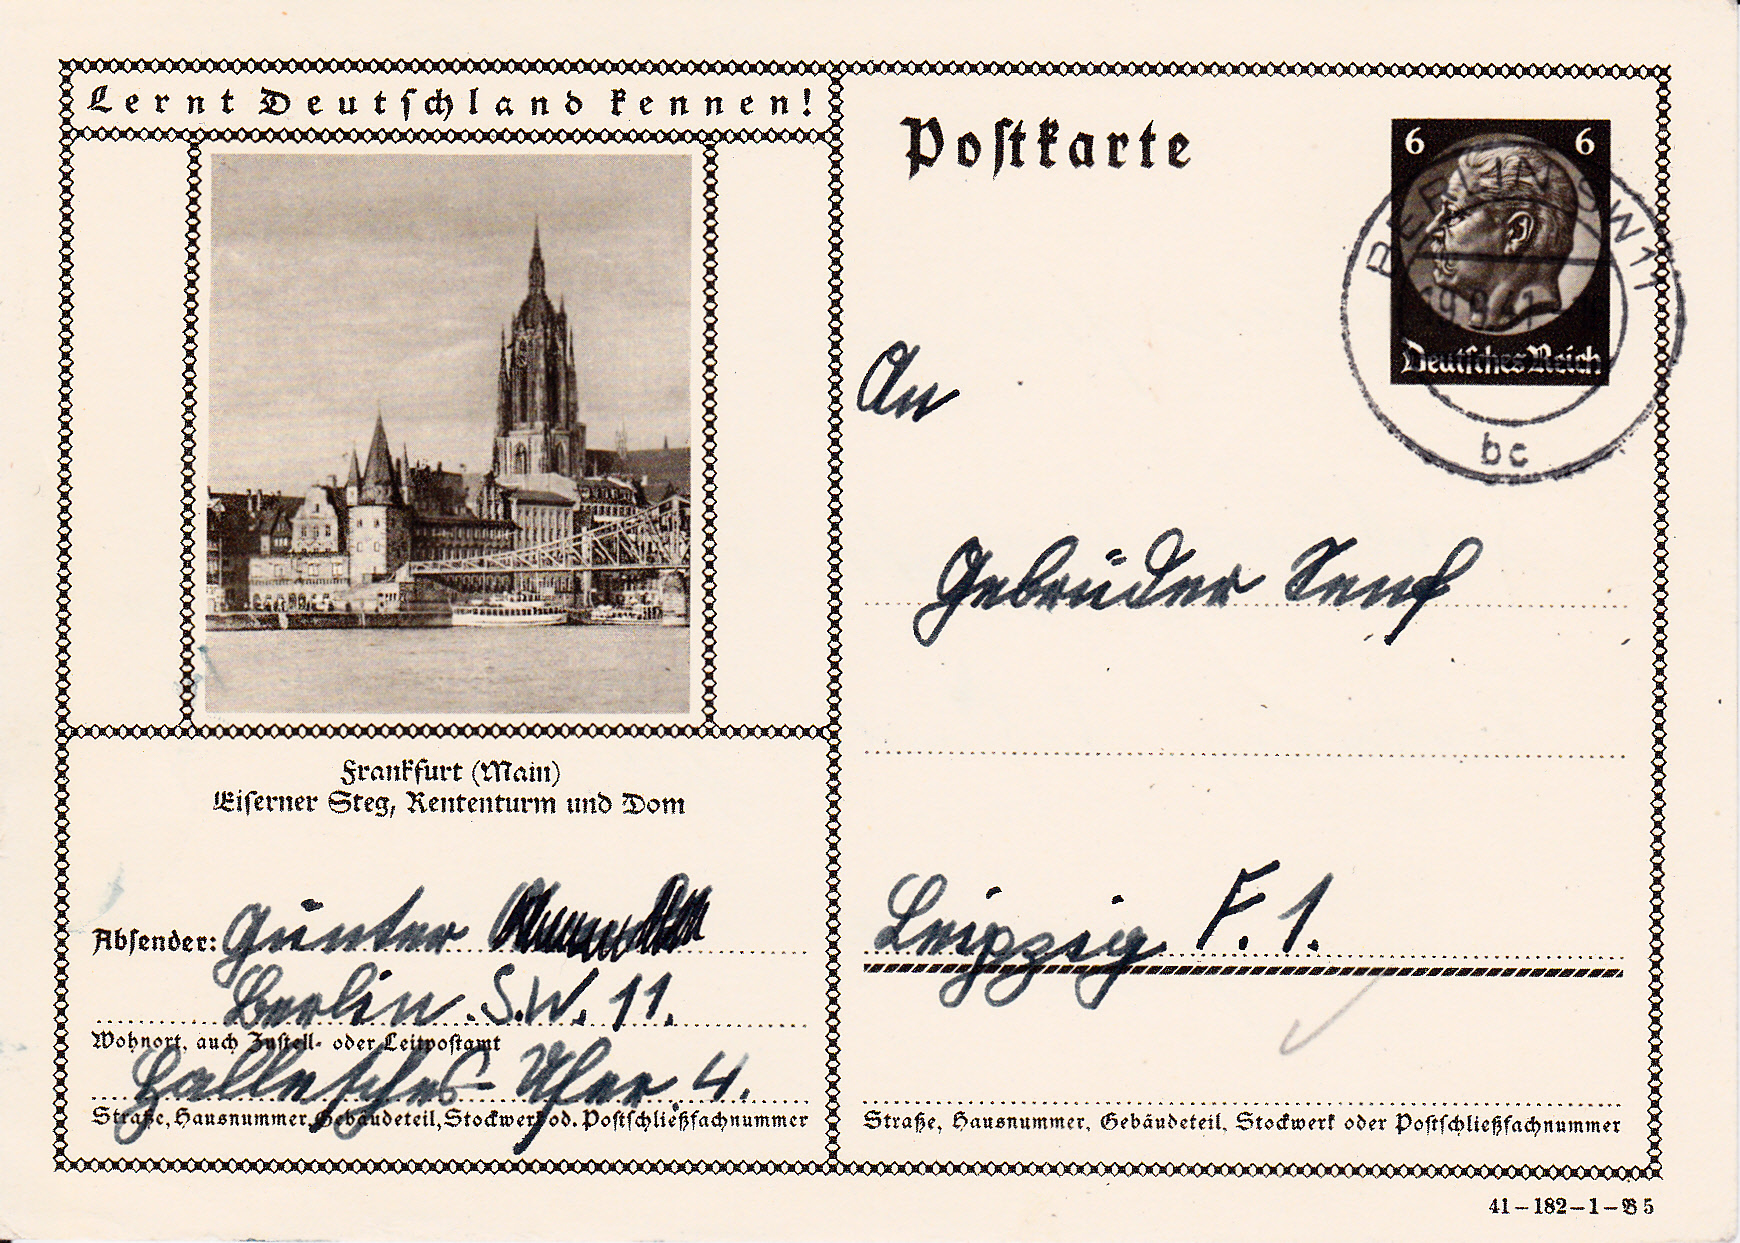 Lernt Deutschland kennen!
Frankfurt (Main)
Eiserner Steg, Rententurm und Dom
Absender: Günter
Berlin. S.W. 11.
Wohnort, auch Zustell- oder Leitpostamt
Hallesches Ufer. 4.
Straße, Hausnummer, Gebäudeteil, Stockwerk od. Postschließfachnummer
Postkarte
6 6
Deutsches Reich
BERLIN SW 11
19.9.41
bc
An
Gebrüder Senf
Leipzig F. 1.
Straße, Hausnummer, Gebäudeteil, Stockwerk oder Postschließfachnummer
41-182-1-B 5